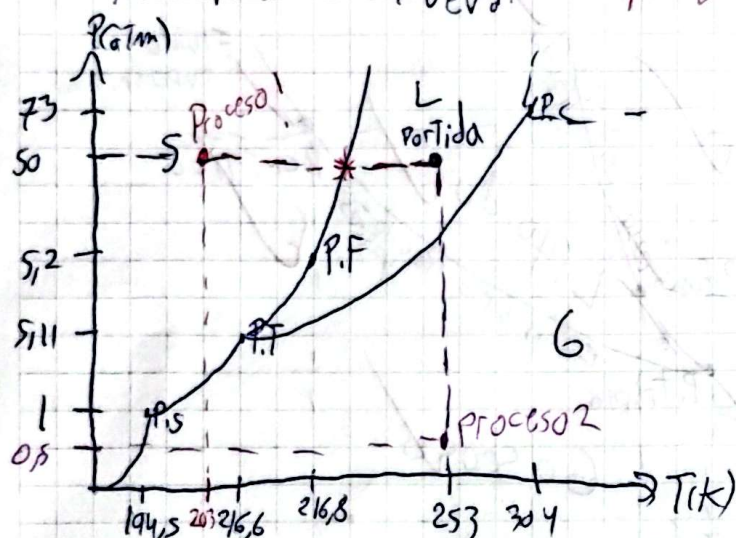 P(aTm)
73
50
5,2
5,11
1
0,5
S
Proceso 1
L
Partida
P.C
P.F
P.T
P.S
G
Proceso 2
194,5 203 216,6 216,8 253 304 T(K)